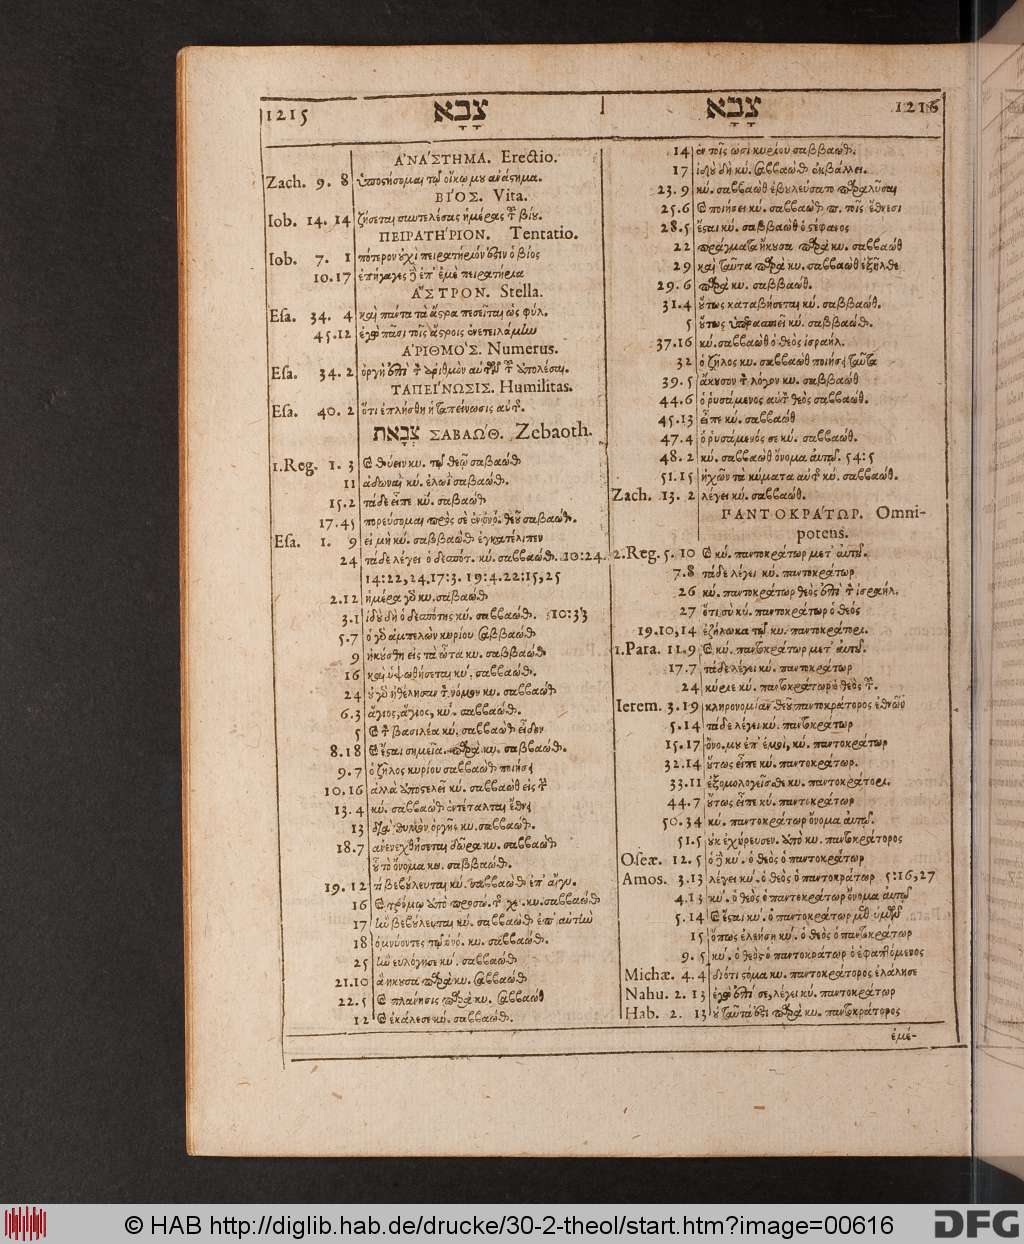 1215 צָבָא
צָבָא 1216
ἈΝΆΣΤΗΜΑ. Erectio.
Zach. 9. 8 ὑποστήσομαι τῷ οἴκῳ μου ἀνάστημα.
ΒΊΟΣ. Vita.
Iob. 14. 14 ζήσεται συντελέσας ἡμέρας τοῦ βίου.
ΠΕΙΡΑΤΉΡΙΟΝ. Tentatio.
Iob. 7. 1 πότερον οὐχὶ πειρατήριόν ἐστιν ὁ βίος
10.17 ἐπήγαγες δὲ ἐπ' ἐμὲ πειρατήρια
ἌΣΤΡΟΝ. Stella.
Esa. 34. 4 καὶ πάντα τὰ ἄστρα πεσεῖται ὡς φύλ.
45.12 ἐγὼ πᾶσι τοῖς ἄστροις ἐνετειλάμην
ἈΡΙΘΜΌΣ. Numerus.
Esa. 34. 2 ὀργὴ ἐπὶ τὸν ἀριθμὸν αὐτῶν τοῦ ἀπολέσαι.
ΤΑΠΕΊΝΩΣΙΣ. Humilitas.
Esa. 40. 2 ὅτι ἐπλήσθη ἡ ταπείνωσις αὐτῆς.
צְבָאֹת ΣΑΒΑΏΘ. Zebaoth.
1.Reg. 1. 3 καὶ θύειν κυ. τῷ θεῷ σαβαώθ
11 ἀδωναῒ κύ. ἐλωῒ σαβαώθ.
15.2 τάδε εἶπε κύ. σαβαώθ
17.45 πορεύσομαι πρὸς σὲ ἐν ὀνό. θεοῦ σαβαώθ.
Esa. 1. 9 εἰ μὴ κύ. σαββαὼθ ἐγκατέλιπεν
24 τάδε λέγει ὁ δεσπότ. κύ. σαββαώθ. 10:24.
14:22,24.17:3. 19:4.22:15,25
2.12 ἡμέρα γὰρ κυ. σαβαώθ
3.1 ἰδοὺ δὴ ὁ δεσπότης κύ. σαββαώθ. 10:33
5.7 ὁ γὰρ ἀμπελὼν κυρίου σαββαώθ
9 ἠκούσθη εἰς τὰ ὦτα κυ. σαββαώθ
16 καὶ ὑψωθήσεται κύ. σαββαώθ.
24 οὐ γὰρ ἠθέλησαν τὸν νόμον κυ. σαββαώθ
6.3 ἅγιος, ἅγιος, κύ. σαββαώθ.
5 καὶ τὸν βασιλέα κύ. σαββαὼθ εἶδον
8.18 καὶ ἔσται σημεῖα. παρὰ κυ. σαββαώθ.
9.7 ὁ ζῆλος κυρίου σαββαὼθ ποιήσει
10.16 ἀλλὰ ἀποστελεῖ κύ. σαββαὼθ εἰς τὴν
13.4 κύ. σαββαὼθ ἐντέταλται ἔθνει
13 διὰ θυμὸν ὀργῆς κυ. σαββαώθ.
18.7 ἀνενεχθήσεται δῶρα κυ. σαββαώθ
οὗ τὸ ὄνομα κυ. σαββαώθ.
19. 12 τί βεβούλευται κύ. σαββαὼθ ἐπ' αἴγυ.
16 καὶ τρόμῳ ἀπὸ προσώ. τῆς χε. κυ. σαββαώθ
17 ἣν βεβούλευται κύ. σαββαὼθ ἐπ' αὐτήν
18 ὀμνύοντες τῷ ὀνό. κυ. σαββαώθ.
25 ἣν εὐλόγησε κύ. σαββαώθ
21.10 ἃ ἤκουσα παρὰ κυ. σαββαώθ
22.5 καὶ πλάνησις παρὰ κυ. σαββαώθ
12 καὶ ἐκάλεσε κύ. σαββαώθ.
14 ἐν τοῖς ὠσὶ κυρίου σαββαώθ.
17 ἰδοὺ δὴ κύ. σαββαὼθ ἐκβάλλει.
23. 9 κύ. σαββαὼθ ἐβουλεύσατο παραλῦσαι
25.6 καὶ ποιήσει κύ. σαββαὼθ π. τοῖς ἔθνεσι
28.5 ἔσται κύ. σαββαὼθ ὁ στέφανος
22 πράγματα ἤκουσα παρὰ κυ. σαββαώθ
29 καὶ ταῦτα παρὰ κυ. σαββαὼθ ἐξῆλθε
29. 6 παρὰ κυ. σαββαώθ.
31.4 οὕτως καταβήσεται κύ. σαββαώθ.
5 οὕτως ὑπερασπιεῖ κύ. σαββαώθ.
37.16 κύ. σαββαὼθ ὁ θεὸς ἰσραήλ.
32 ὁ ζῆλος κυ. σαββαὼθ ποιήσει ταῦτα
39. 5 ἄκουσον τὸν λόγον κυ. σαββαώθ
44.6 ὁ ῥυσάμενος αὐτὸν θεὸς σαββαώθ.
45.13 εἶπε κύ. σαββαώθ
47.4 ὁ ῥυσάμενός σε κύ. σαββαώθ.
48. 2 κύ. σαββαὼθ ὄνομα αὐτῷ. 54:5
51.15 ἠχῶν τὰ κύματα αὐτῆς κύ. σαββαώθ.
Zach. 13. 2 λέγει κύ. σαββαώθ.
ΠΑΝΤΟΚΡΆΤΩΡ. Omni-
potens.
2.Reg. 5. 10 καὶ κύ. παντοκράτωρ μετ' αὐτοῦ.
7.8 τάδε λέγει κύ. παντοκράτωρ
26 κύ. παντοκράτωρ θεὸς ἐπὶ τὸν ἰσραήλ.
27 ὅτι σὺ κύ. παντοκράτωρ ὁ θεὸς
19.10,14 ἐζήλωκα τῷ κυ. παντοκράτορι.
1.Para. 11.9 καὶ κύ. παντοκράτωρ μετ' αὐτοῦ.
17.7 τάδε λέγει κύ. παντοκράτωρ
24 κύριε κύ. παντοκράτωρ ὁ θεὸς τοῦ.
Ierem. 3.19 κληρονομίαν θεοῦ παντοκράτορος ἐθνῶν
5.14 τάδε λέγει κύ. παντοκράτωρ
15.17 ὄνο. σου ἐπ' ἐμοί, κύ. παντοκράτωρ
32.14 οὕτως εἶπε κύ. παντοκράτωρ.
33.11 ἐξομολογεῖσθε κυ. παντοκράτορι.
44.7 οὕτως εἶπε κύ. παντοκράτωρ
50.34 κύ. παντοκράτωρ ὄνομα αὐτῷ.
51.5 οὐκ ἐχήρευσεν. ἀπὸ κυ. παντοκράτορος
Oseæ. 12.5 ὁ δὲ κύ. ὁ θεὸς ὁ παντοκράτωρ
Amos. 3.13 λέγει κύ. ὁ θεὸς ὁ παντοκράτωρ 5:16,27
4.13 κύ. ὁ θεὸς ὁ παντοκράτωρ ὄνομα αὐτῷ
5.14 καὶ ἔσται κύ. ὁ παντοκράτωρ μεθ' ὑμῶν
15 ὅπως ἐλεήσῃ κύ. ὁ θεὸς ὁ παντοκράτωρ
9. 5 κύ. ὁ θεὸς ὁ παντοκράτωρ ὁ ἐφαπτόμενος
Michæ. 4. 4 διότι στόμα κυ. παντοκράτορος ἐλάλησε
Nahu. 2. 13 ἐγὼ ἐπί σε, λέγει κύ. παντοκράτωρ
Hab. 2. 13 οὐ ταῦτά ἐστι παρὰ κυ. παντοκράτορος
ἐμέ-
© HAB http://diglib.hab.de/drucke/30-2-theol/start.htm?image=00616
DFG